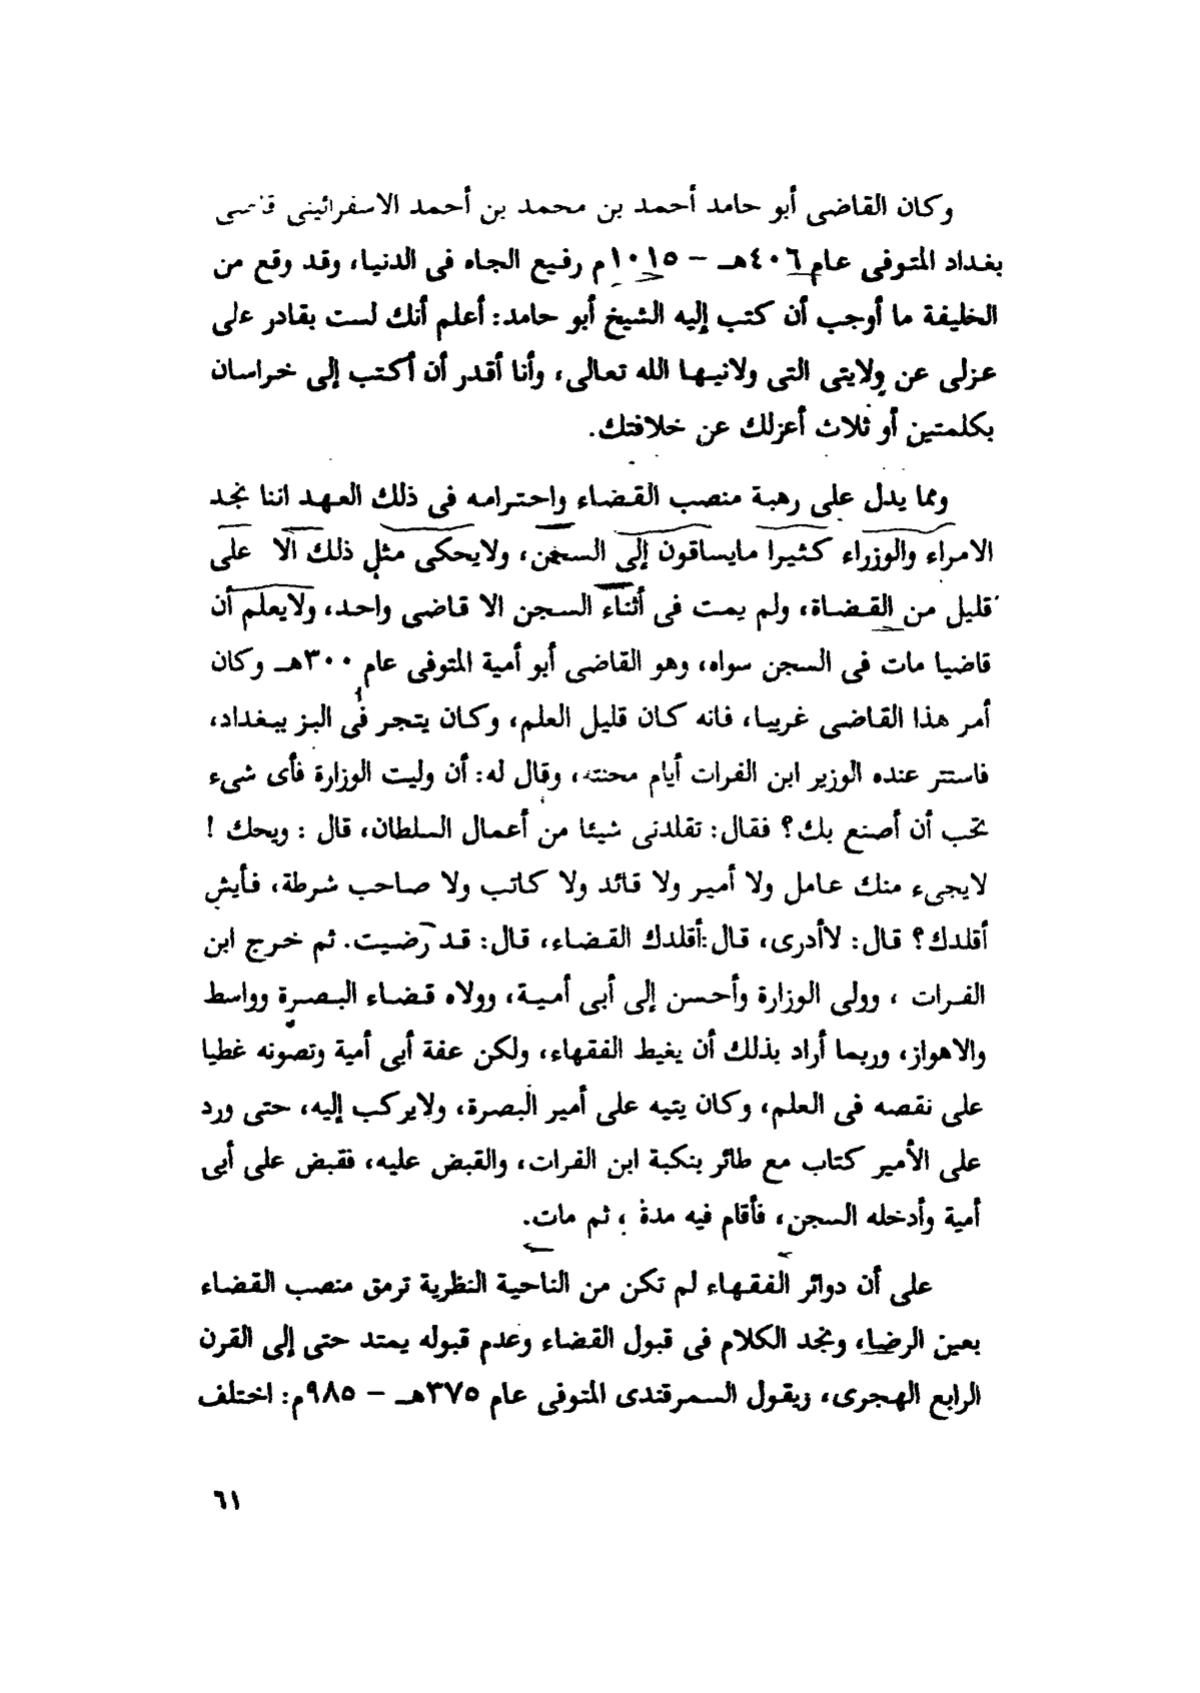 وكان القاضى أبو حامد أحمد بن محمد بن أحمد الاسفرائينى قاضى
بغداد المتوفى عام ٤٠٦هـ – ١٠١٥م رفيع الجاه فى الدنيا، وقد وقع من
الخليفة ما أوجب أن كتب إليه الشيخ أبو حامد: أعلم أنك لست بقادر على
عزلى عن ولايتى التى ولانيها الله تعالى، وأنا أقدر أن أكتب إلى خراسان
بكلمتين أو ثلاث أعزلك عن خلافتك.
ومما يدل على رهبة منصب القضاء واحترامه فى ذلك العهد اننا نجد
الامراء والوزراء كثيرا مايساقون إلى السجن، ولايحكى مثل ذلك الا على
قليل من القضاة، ولم يمت فى أثناء السجن الا قاضى واحد، ولايعلم أن
قاضيا مات فى السجن سواه، وهو القاضى أبو أمية المتوفى عام ٣٠٠هـ وكان
أمر هذا القاضى غريبا، فانه كان قليل العلم، وكان يتجر فى البز ببغداد،
فاستتر عنده الوزير ابن الفرات أيام محنته، وقال له: أن وليت الوزارة فأى شىء
تحب أن أصنع بك؟ فقال: تقلدنى شيئا من أعمال السلطان، قال : ويحك !
لايجىء منك عامل ولا أمير ولا قائد ولا كاتب ولا صاحب شرطة، فأيش
أقلدك؟ قال: لاأدرى، قال:أقلدك القضاء، قال: قد رضيت. ثم خرج ابن
الفرات ، وولى الوزارة وأحسن إلى أبى أمية، وولاه قضاء البصرة وواسط
والاهواز، وربما أراد بذلك أن يغيط الفقهاء، ولكن عفة أبى أمية وتصونه غطيا
على نقصه فى العلم، وكان يتيه على أمير البصرة، ولايركب إليه، حتى ورد
على الأمير كتاب مع طائر بنكبة ابن الفرات، والقبض عليه، فقبض على أبى
أمية وأدخله السجن، فأقام فيه مدة ، ثم مات.
على أن دوائر الفقهاء لم تكن من الناحية النظرية ترمق منصب القضاء
بعين الرضا، ونجد الكلام فى قبول القضاء وعدم قبوله يمتد حتى إلى القرن
الرابع الهجرى، ويقول السمرقندى المتوفى عام ٣٧٥هـ – ٩٨٥م: اختلف
٦١